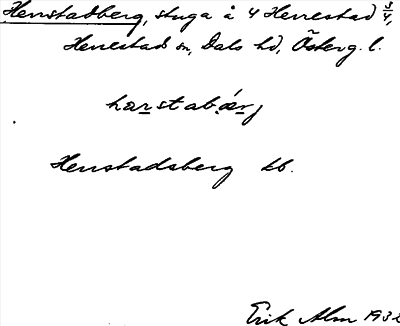 Herrstadberg, stuga å 4 Herrestad 3/4,
Herrestads sn, Dals hd, Österg. l.
hærstabǽrj
Herrstadsberg kb.
Erik Alm 1932